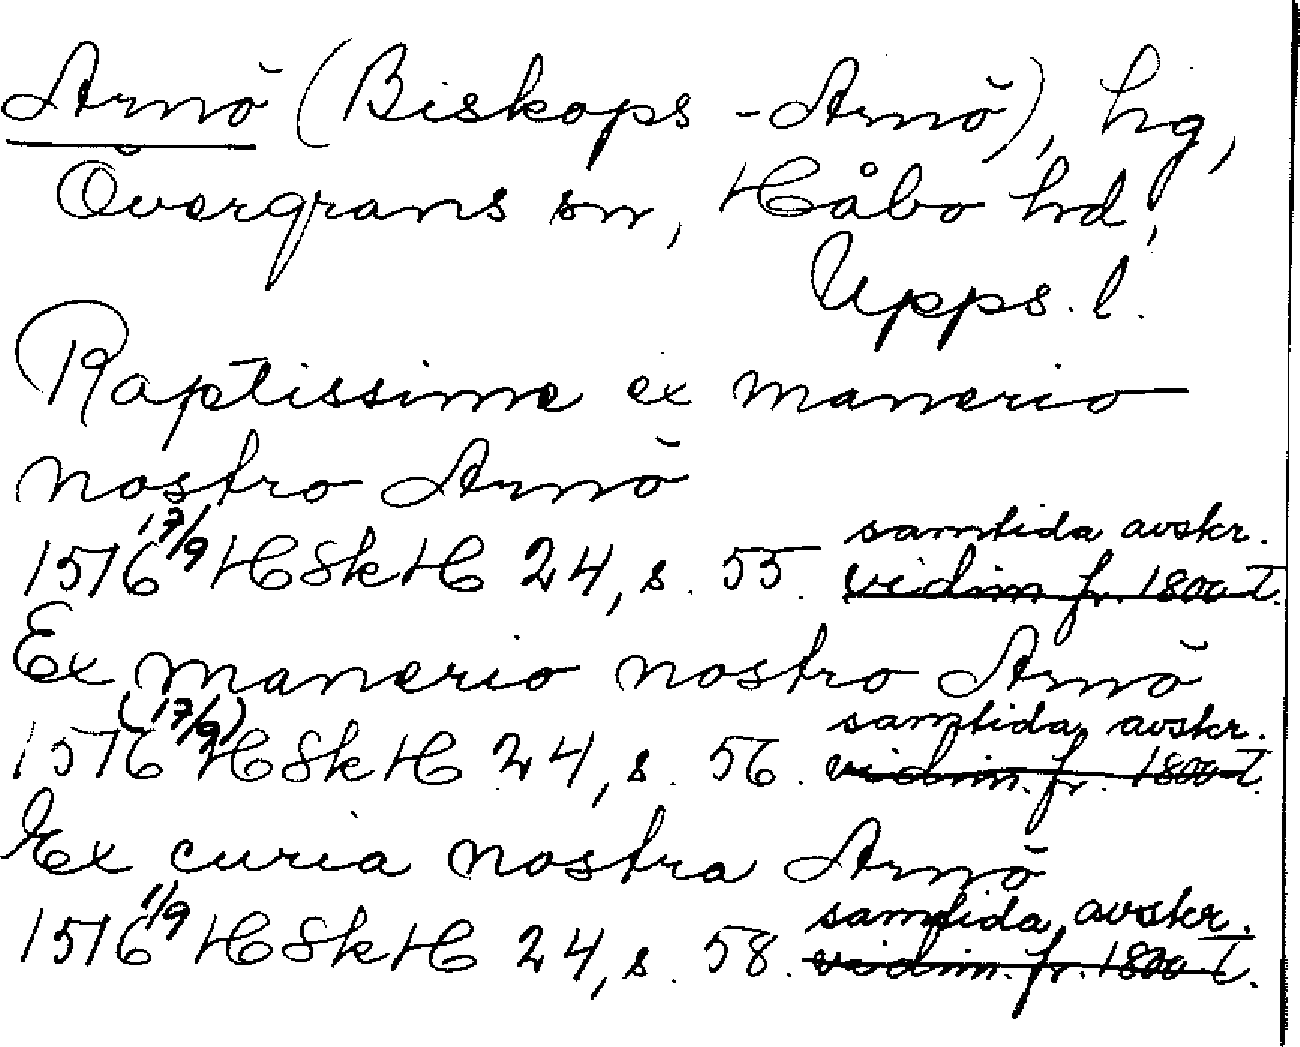 Arnö (Biskops-Arnö), hg,
Övergrans sn, Håbo hd,
Upps. l.
Raptissime ex manerio
nostro Arnö
1516 17/9 HSkH 24, s. 55. samtida avskr.
vidim fr. 1800-t.
Ex manerio nostro Arnö
1516 (17/9) HSkH 24, s. 56. samtida avskr.
vidim. fr. 1800-t.
Ex curia nostra Arnö
1516 1/9 HSkH 24, s. 58. samtida avskr.
vidim. fr. 1800-t.